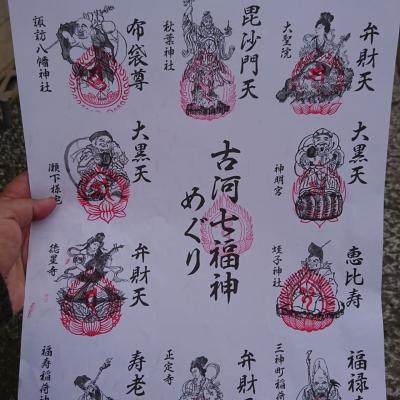 弁財天
大聖院
毘沙門天
秋葉神社
布袋尊
諏訪八幡神社
大黒天
神明宮
古河七福神
めぐり
大黒天
恵比寿
蛭子神社
弁財天
徳星寺
福禄
三神町稲荷
弁財
正定寺
寿老
福寿稲荷神